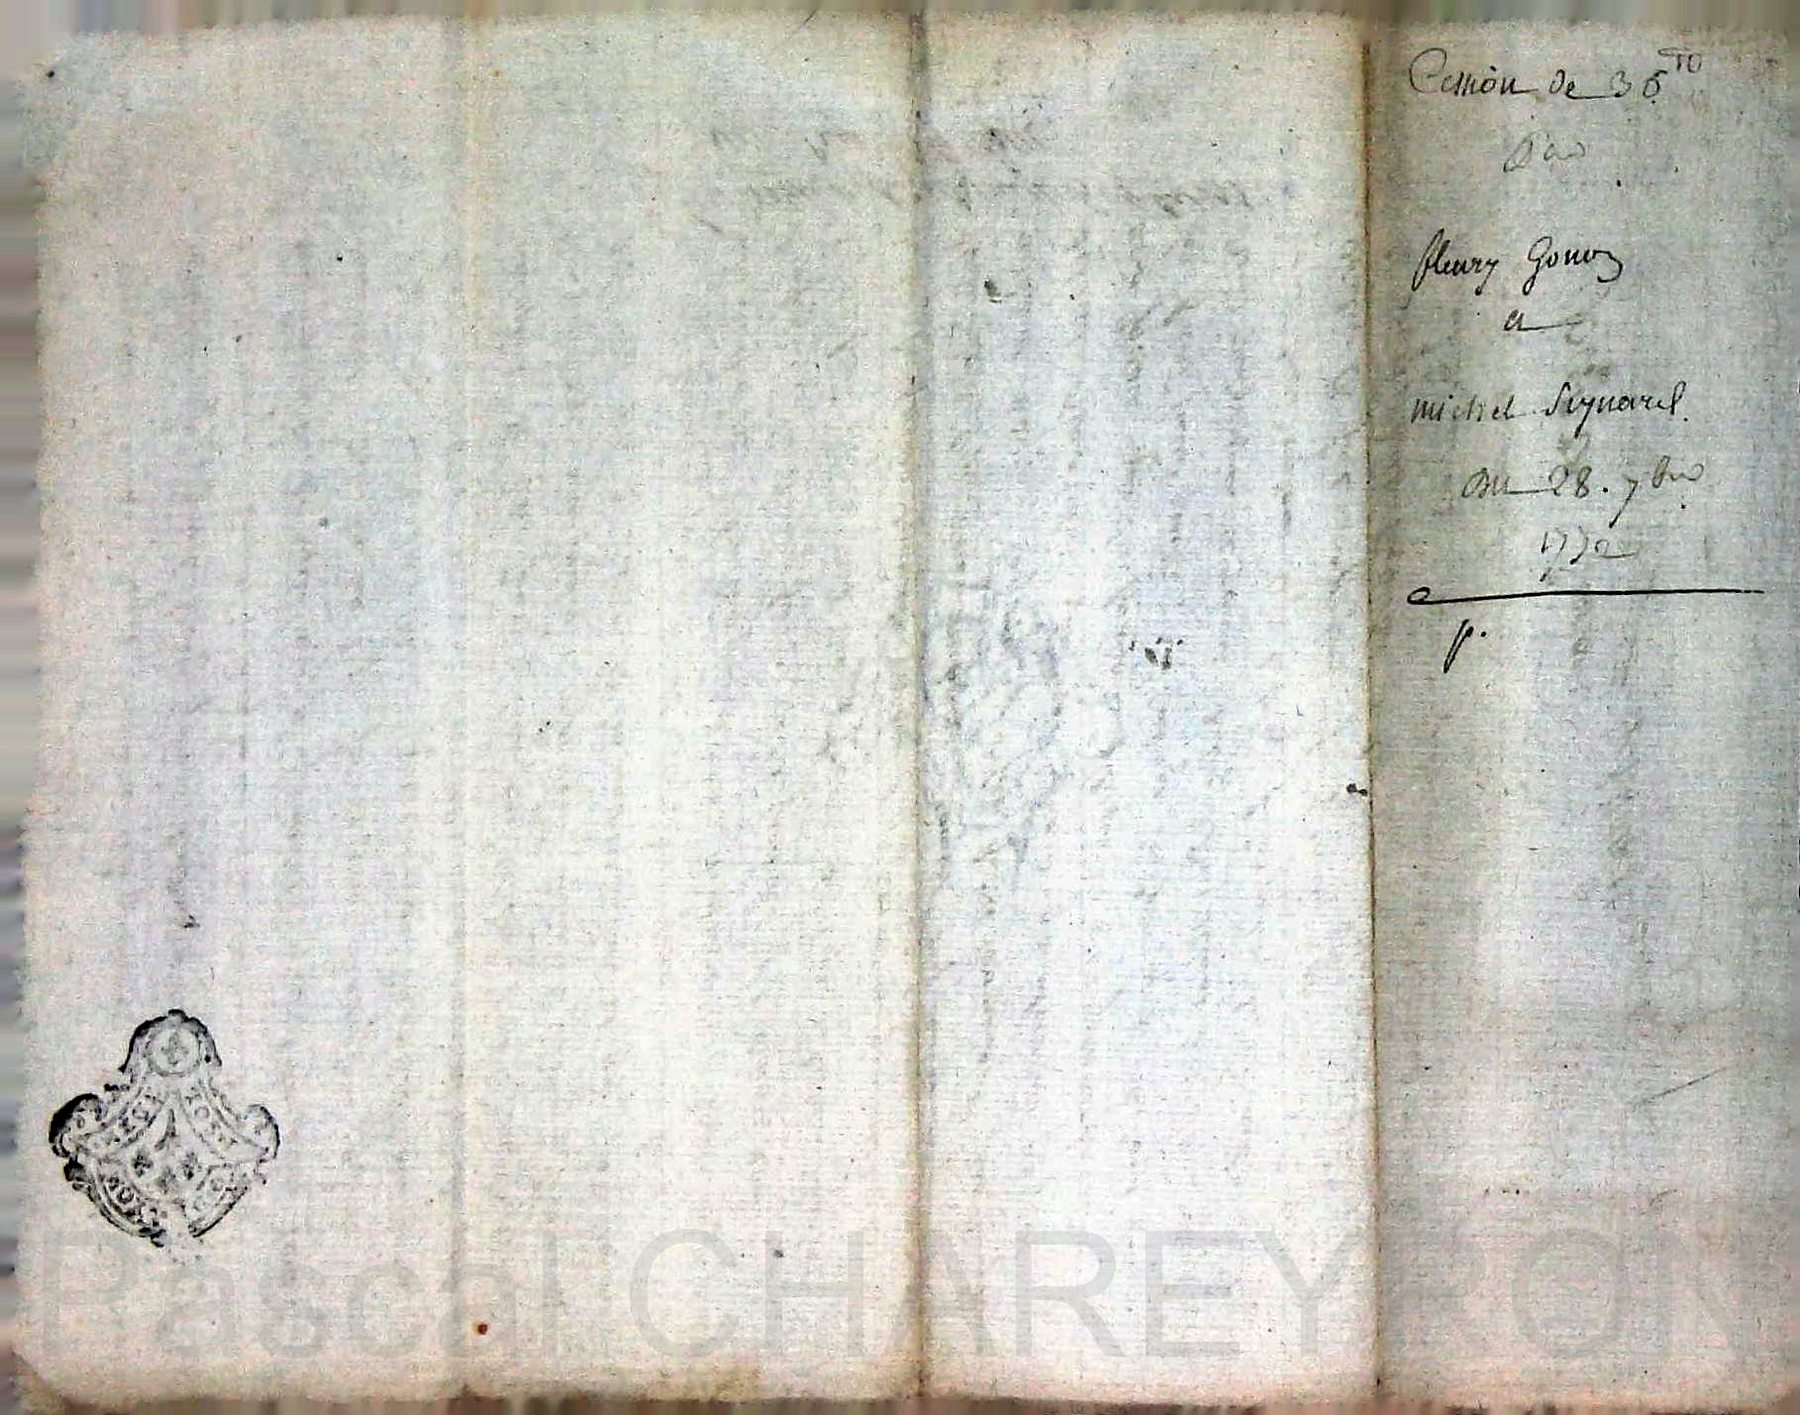 Cession de 36 ᵗᵗ
Par
fleury Gonon
a
michel Seynard.
Du 28. 7bre
1772
p.
Pascal CHAREYRON